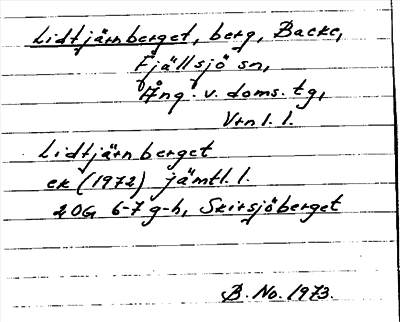 Lidtjärnberget, berg, Backe,
Fjällsjö sn,
Ång. v. doms. tg,
Vrnl. l.
Lidtjärnberget
ek (1972) jämtl. l.
20G 6-7 g-h, Skirsjöberget
B. No. 1973.